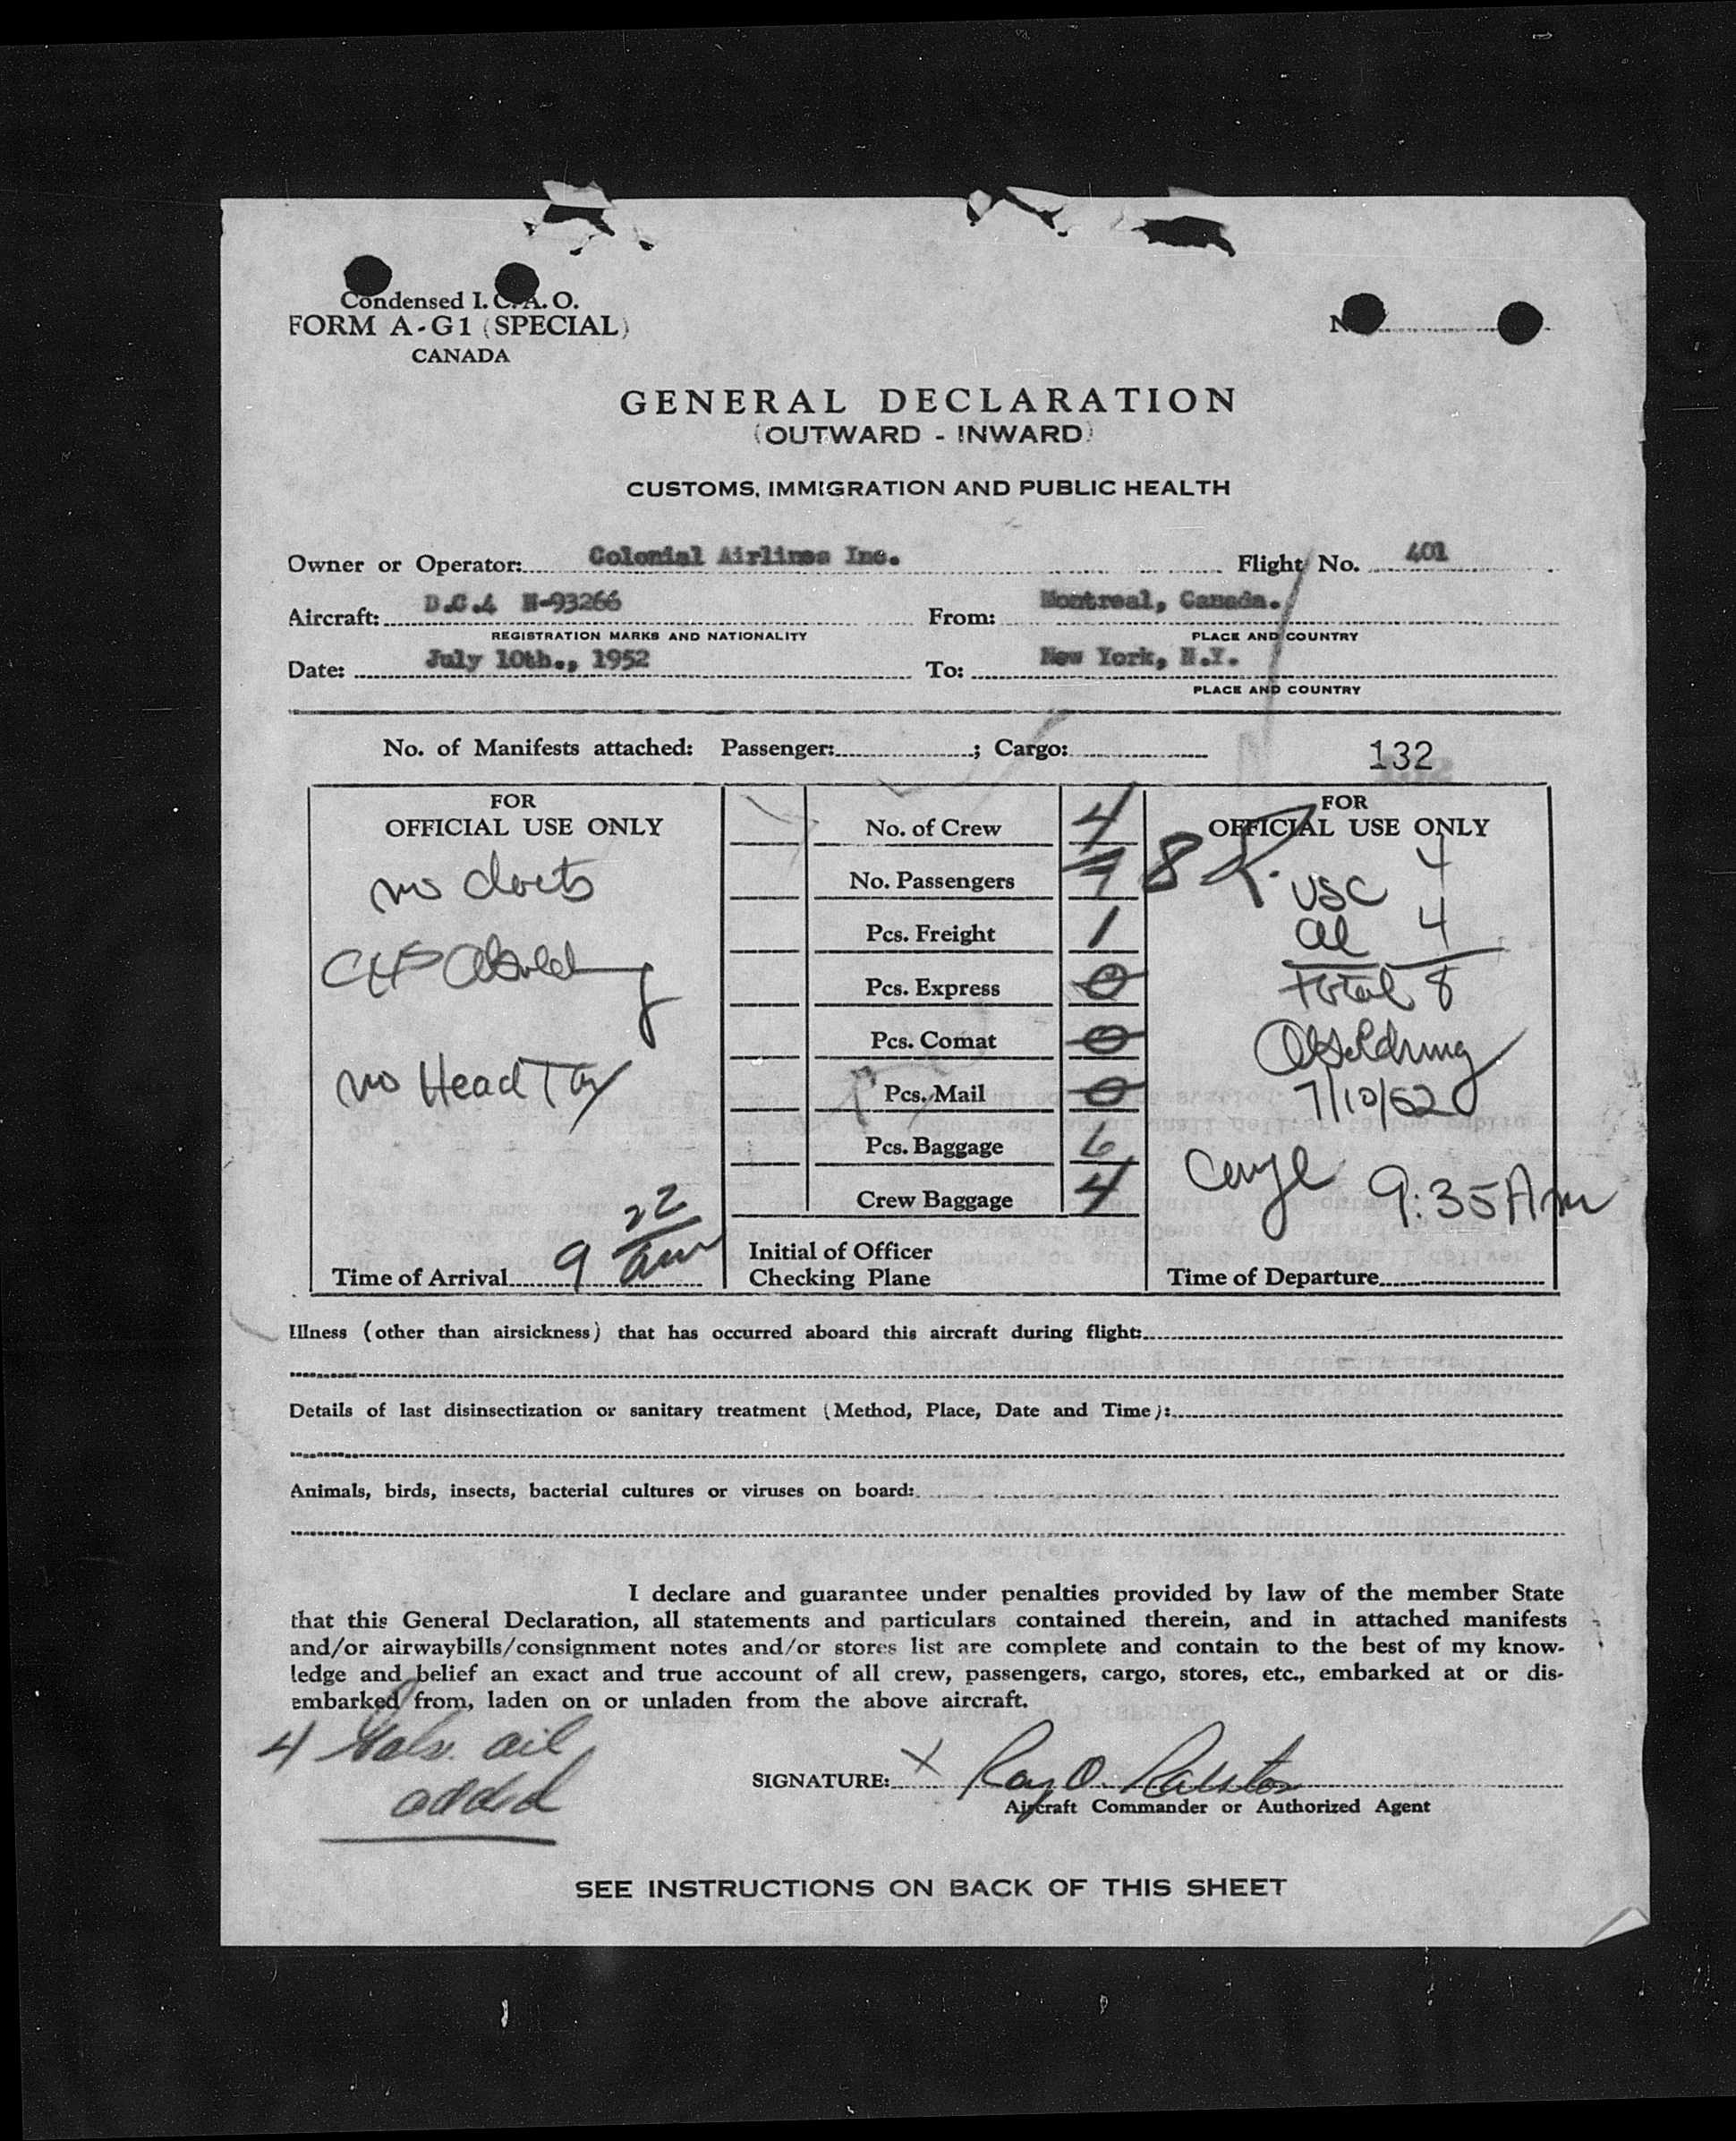 Condensed I.C.A.O.
FORM A-G1 (SPECIAL)
CANADA
GENERAL DECLARATION
(OUTWARD - INWARD)
CUSTOMS, IMMIGRATION AND PUBLIC HEALTH
Owner or Operator: Colonial Airlines Inc. Flight No. 401
Aircraft: D.C.4 N-93266 From: Montreal, Canada.
REGISTRATION MARKS AND NATIONALITY PLACE AND COUNTRY
Date: July 10th., 1952 To: New York, N.Y.
PLACE AND COUNTRY
No. of Manifests attached: Passenger: ; Cargo: 132
FOR
OFFICIAL USE ONLY
no
no Head Tax
Time of Arrival 9 22 am
No. of Crew 4
No. Passengers 8
Pcs. Freight 1
Pcs. Express 0
Pcs. Comat 0
Pcs. Mail 0
Pcs. Baggage 6
Crew Baggage 4
Initial of Officer
Checking Plane
FOR
OFFICIAL USE ONLY
USC 4
al 4
Total 8
7/10/52
9:35 Am
Time of Departure
Illness (other than airsickness) that has occurred aboard this aircraft during flight:
Details of last disinsectization or sanitary treatment (Method, Place, Date and Time):
Animals, birds, insects, bacterial cultures or viruses on board:
I declare and guarantee under penalties provided by law of the member State
that this General Declaration, all statements and particulars contained therein, and in attached manifests
and/or airwaybills/consignment notes and/or stores list are complete and contain to the best of my know-
ledge and belief an exact and true account of all crew, passengers, cargo, stores, etc., embarked at or dis-
embarked from, laden on or unladen from the above aircraft.
4 Gals. oil
added
SIGNATURE: X Ray O. Ralston
Aircraft Commander or Authorized Agent
SEE INSTRUCTIONS ON BACK OF THIS SHEET